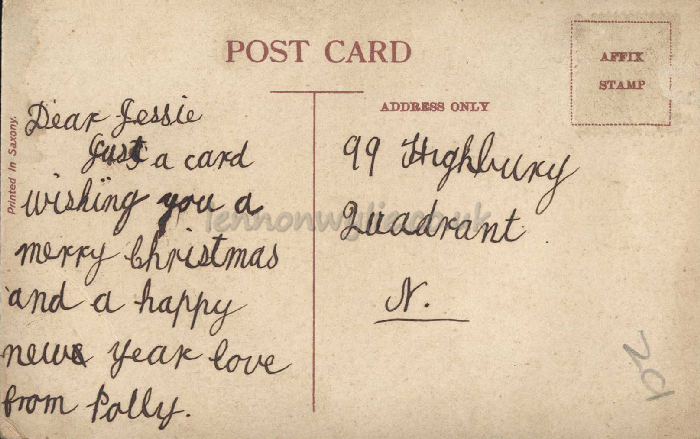 POST CARD
AFFIX
STAMP
ADDRESS ONLY
Printed in Saxony.
Dear Jessie
Just a card
wishing you a
merry Christmas
and a happy
new year love
from Polly.
99 Highbury
Quadrant
N.
lennonwylie.co.uk
20